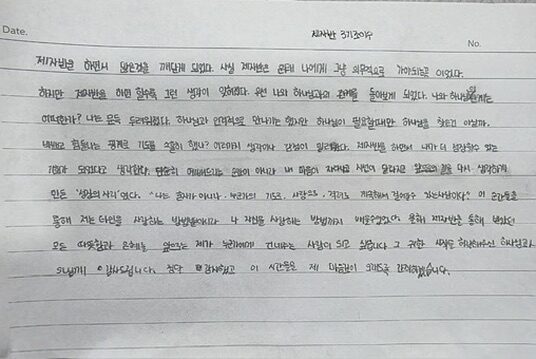 Date.
제자반 3기 조이수
No.
제자반을 하면서 많은것을 깨닫게 되었다. 사실 제자반은 원래 나에게 그냥 의무적으로 가야되는곳 이었다.
하지만 제자반을 하면 할수록 그런 생각이 잊혀졌다. 우선 나와 하나님과의 관계를 돌아보게 되었다. 나와 하나님의 관계는
어떠한가? 나는 문득 두려워졌다. 하나님과 인격적으로 만나기는 했지만 하나님이 필요할때만 하나님을 찾는건 아닐까.
힘들다는 핑계로 기도를 소홀히 했나? 여러가지 생각이나 감정이 밀려왔다. 제자반을 하면서 내가 더 성장할수 있는
기회가 되었다고 생각한다. 단순히 아니라 내 마음이 자라나고 시선이 달라지고 다시 생각하게
만든 "성장의 시작"였다. "나는 혼자가 아니라 누군가의 기도로, 사랑으로, 격려로 걸어갈수 있는사람이다" 이 순간들을
통해 저는 타인을 사랑하는 방법뿐아니라 나 자신을 사랑하는 방법까지 배울수있었다. 올해 제자반을 통해 받았던
모든 따뜻함과 은혜를 앞으로는 제가 누군가에게 건네주는 사람이 되고 싶습니다. 귀한 하나님과
감사드립니다. 정말 감사했고 이 시간들은 제 마음깊이 오래도록 간직하겠습니다.